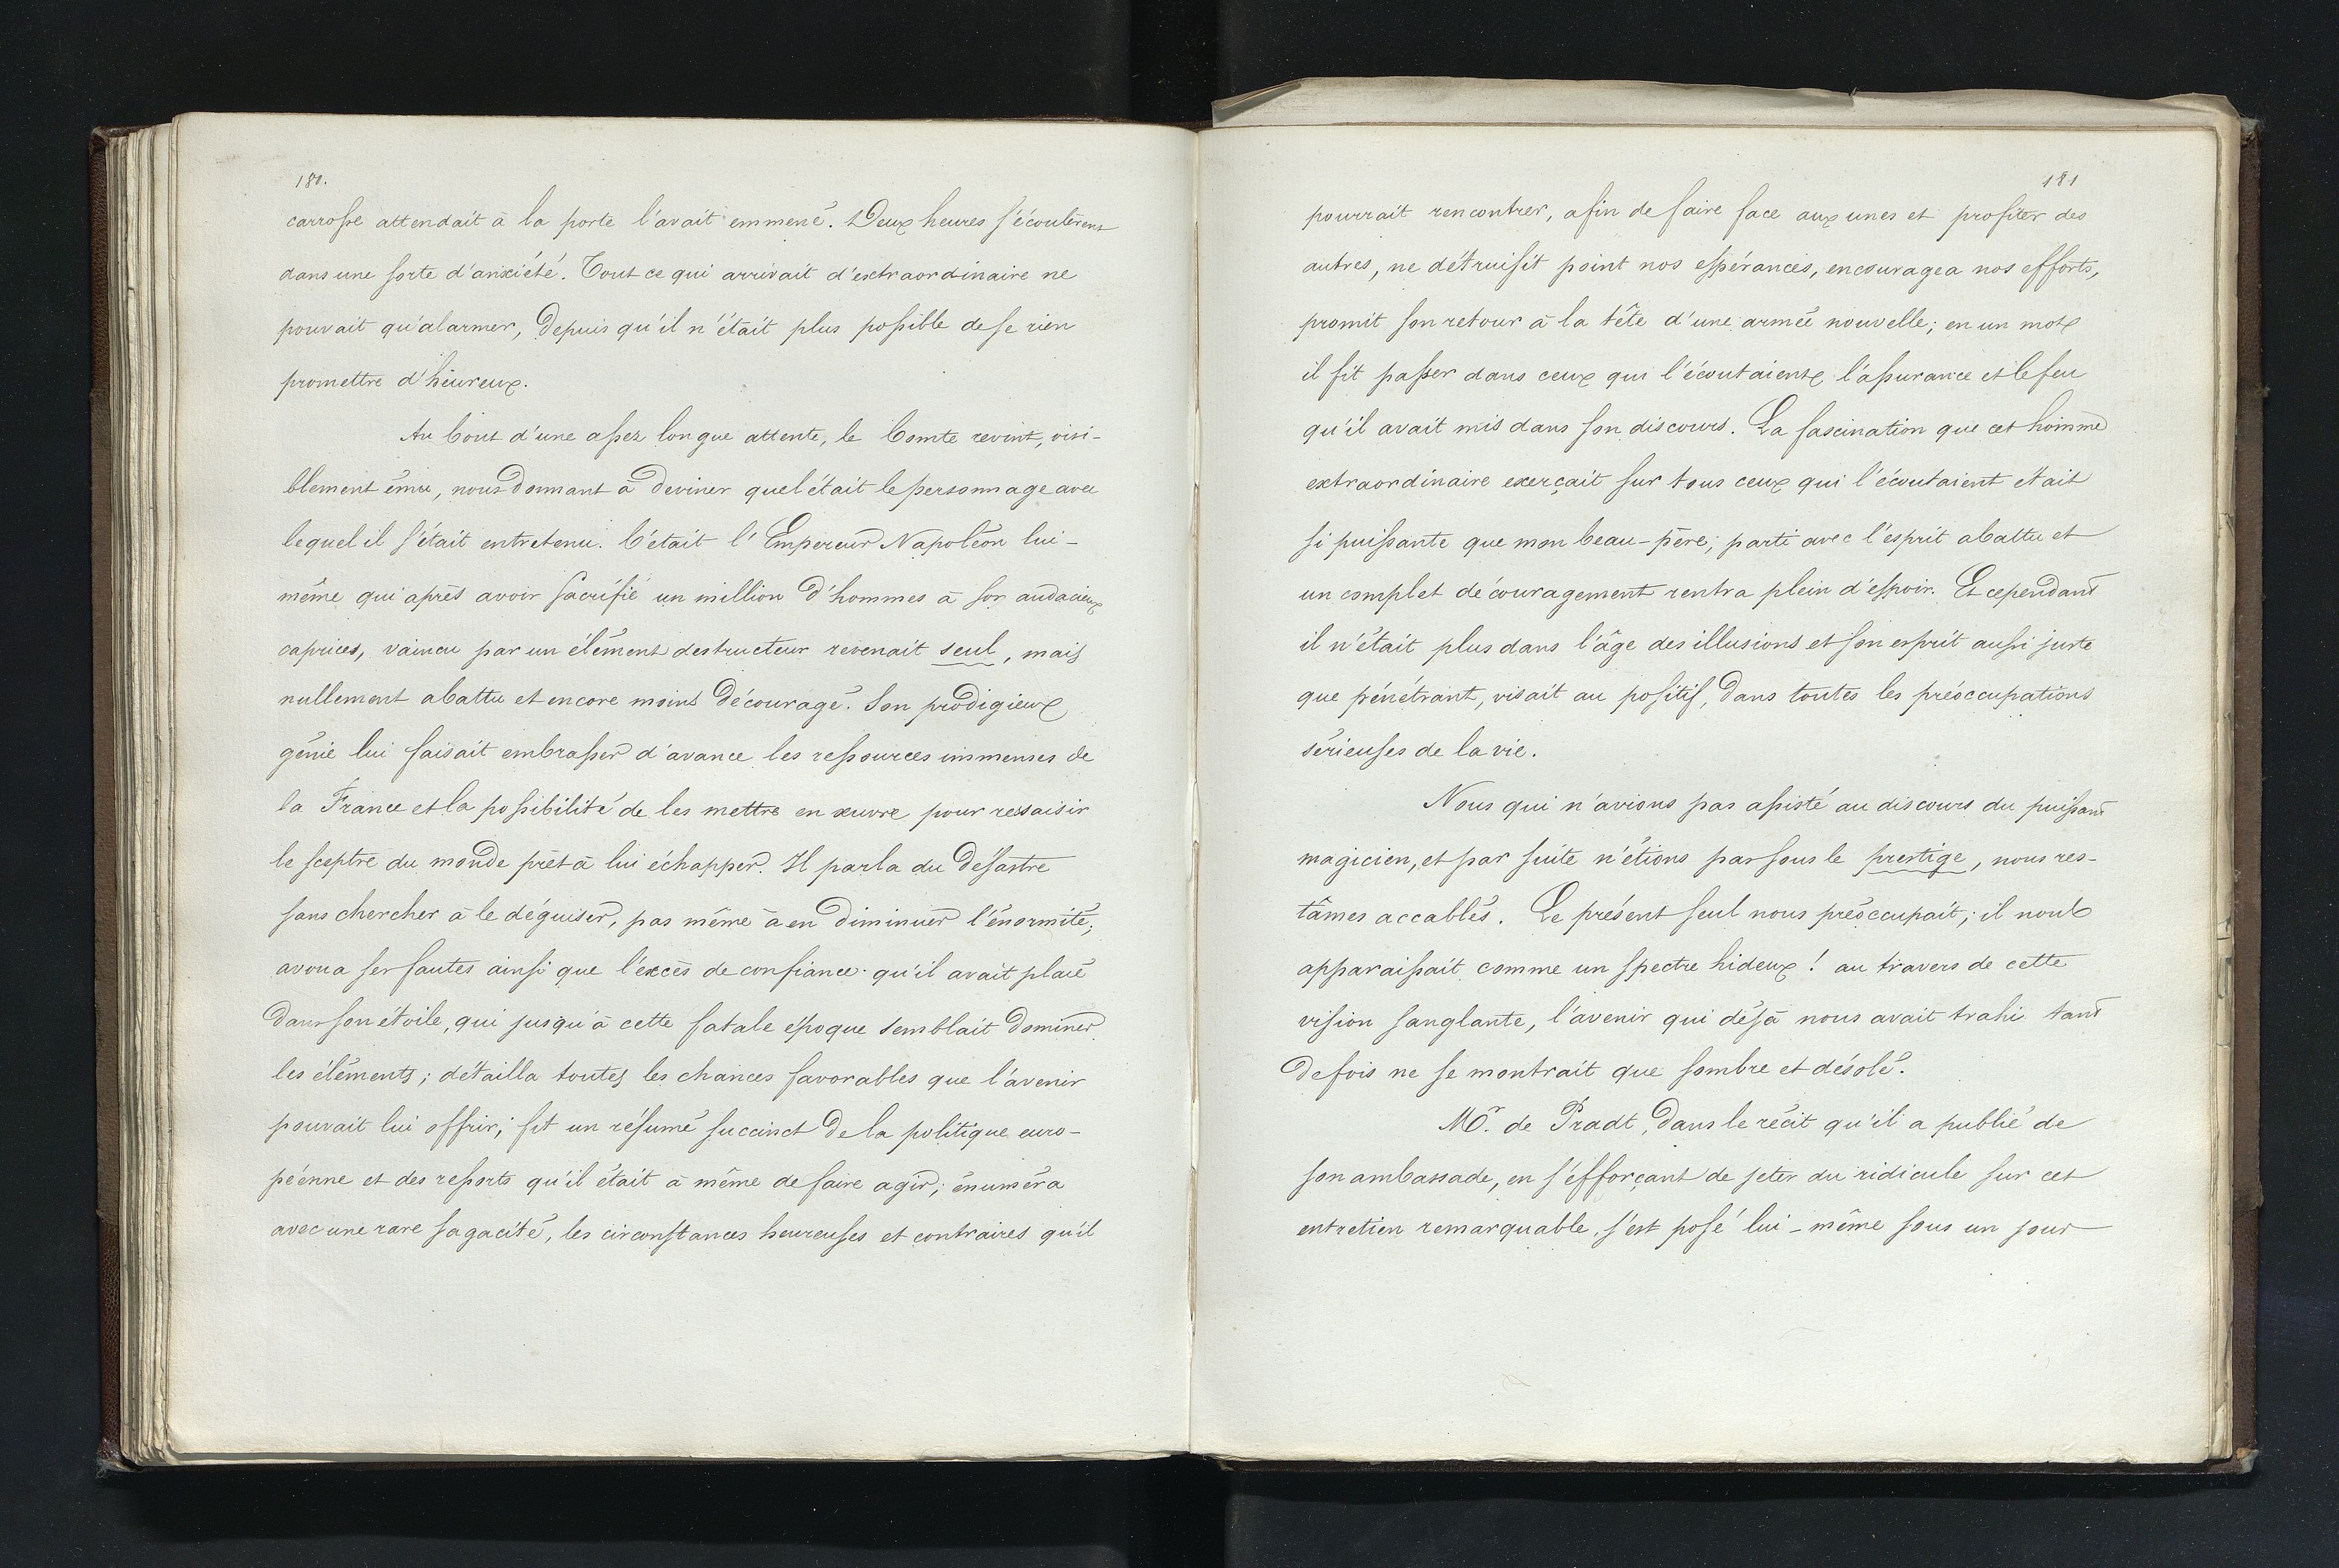 180.
carrosse attendait à la porte l'avait emmené. Deux heures s'écoulèrent
dans une sorte d'anxiété. Tout ce qui arrivait d'extraordinaire ne
pouvait qu'alarmer, depuis qu'il n'était plus possible de se rien
promettre d'heureux.
Au bout d'une assez longue attente, le Comte revint, visi-
blement ému, nous donnant à deviner quel était le personnage avec
lequel il s'était entretenu. C'était l'Empereur Napoléon lui-
même qui après avoir sacrifié un million d'hommes à ses audacieux
caprices, vaincu par un élément destructeur revenait seul, mais
nullement abattu et encore moins découragé. Son prodigieux
génie lui faisait embrasser d'avance les ressources immenses de
la France et la possibilité de les mettre en œuvre pour ressaisir
le sceptre du monde prêt à lui échapper. Il parla du désastre
sans chercher à le déguiser, pas même à en diminuer l'énormité;
avoua ses fautes ainsi que l'excès de confiance qu'il avait placé
dans son étoile, qui jusqu'à cette fatale époque semblait dominer
les éléments; détailla toutes les chances favorables que l'avenir
pouvait lui offrir; fit un résumé succinct de la politique euro-
péenne et des ressorts qu'il était à même de faire agir; énuméra
avec une rare sagacité, les circonstances heureuses et contraires qu'il
181
pourrait rencontrer, afin de faire face aux unes et profiter des
autres, ne détruisit point nos espérances, encouragea nos efforts,
promit son retour à la tête d'une armée nouvelle; en un mot
il fit passer dans ceux qui l'écoutaient, l'assurance et le feu
qu'il avait mis dans son discours. La fascination que cet homme
extraordinaire exerçait sur tous ceux qui l'écoutaient était
si puissante que mon beau-père, parti avec l'esprit abattu et
un complet découragement rentra plein d'espoir. Et cependant
il n'était plus dans l'âge des illusions et son esprit aussi juste
que pénétrant, visait au positif, dans toutes les préoccupations
sérieuses de la vie.
Nous qui n'avions pas assisté au discours du puissant
magicien, et par suite n'étions pas sous le prestige, nous res-
tâmes accablés. Le présent seul nous préoccupait; il nous
apparaissait comme un spectre hideux! au travers de cette
vision sanglante, l'avenir qui déjà nous avait trahi tant
de fois ne se montrait que sombre et désolé.
Mr. de Pradt, dans le récit qu'il a publié de
son ambassade, en s'efforçant de jeter du ridicule sur cet
entretien remarquable, s'est posé lui-même sous un jour